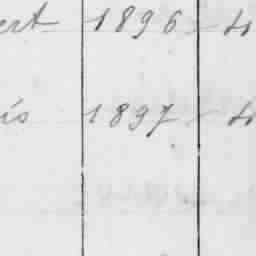 ert 1896 4
is 1897 4